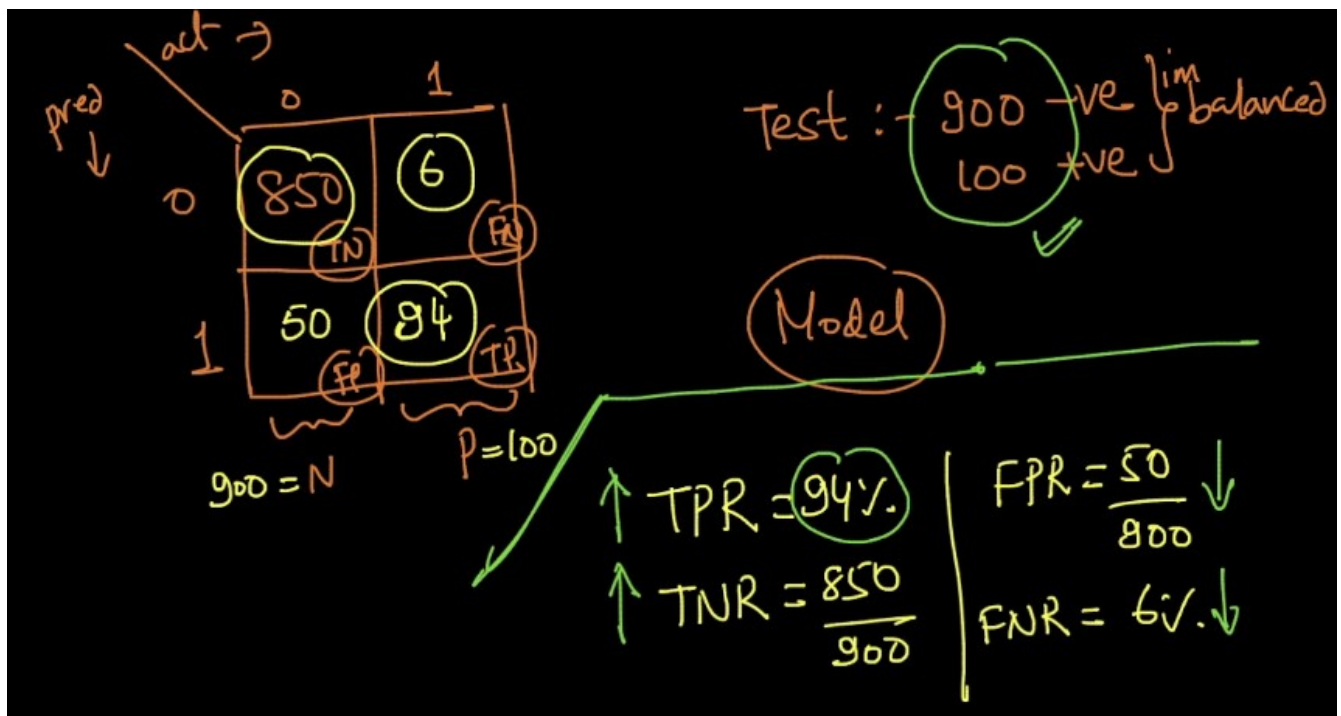 act →
pred ↓
0 1
0 850 TN 6 FN
1 50 FP 94 TP
900 = N
P = 100
Test :- 900 -ve } im
100 +ve } balanced
Model
↑ TPR = 94%
↑ TNR = 850
900
FPR = 50 ↓
900
FNR = 6% ↓